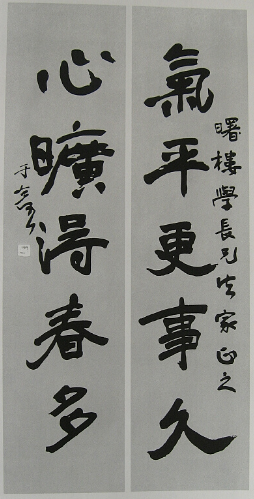 氣平更事久
曙樓學長兄法家正之
心曠得春多